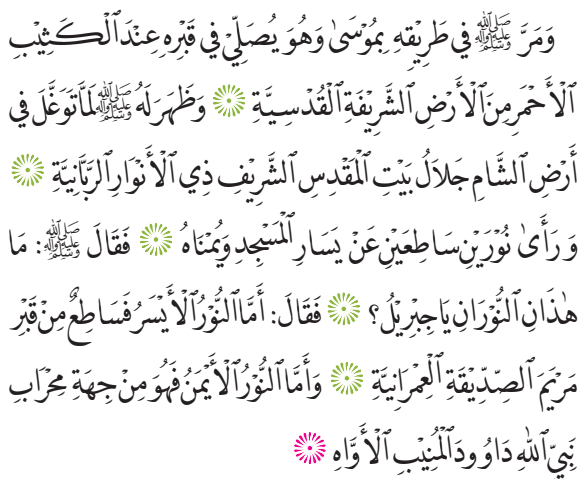 وَمَرَّ ﷺ فِي طَرِيْقِهِ بِمُوْسَىٰ وَهُوَ يُصَلِّيْ فِي قَبْرِهِ عِنْدَ ٱلْكَثِيْبِ
ٱلْأَحْمَرِ مِنَ ٱلْأَرْضِ ٱلشَّرِيْفَةِ ٱلْقُدْسِيَّةِ ۞ وَظَهَرَ لَهُ ﷺ لَمَّا تَوَغَّلَ فِي
أَرْضِ ٱلشَّامِ جَلَالُ بَيْتِ ٱلْمَقْدِسِ ٱلشَّرِيْفِ ذِي ٱلْأَنْوَارِ ٱلرَّبَّانِيَّةِ ۞
وَرَأَىٰ نُوْرَيْنِ سَاطِعَيْنِ عَنْ يَسَارِ ٱلْمَسْجِدِ وَيُمْنَاهُ ۞ فَقَالَ ﷺ: مَا
هٰذَانِ ٱلنُّوْرَانِ يَا جِبْرِيْلُ؟ ۞ فَقَالَ: أَمَّا ٱلنُّوْرُ ٱلْأَيْسَرُ فَسَاطِعٌ مِنْ قَبْرِ
مَرْيَمَ ٱلصِّدِّيْقَةِ ٱلْعِمْرَانِيَّةِ ۞ وَأَمَّا ٱلنُّوْرُ ٱلْأَيْمَنُ فَهُوَ مِنْ جِهَةِ مِحْرَابِ
نَبِيِّ ٱللهِ دَاوُودَ ٱلْمُنِيْبِ ٱلْأَوَّاهِ ۞